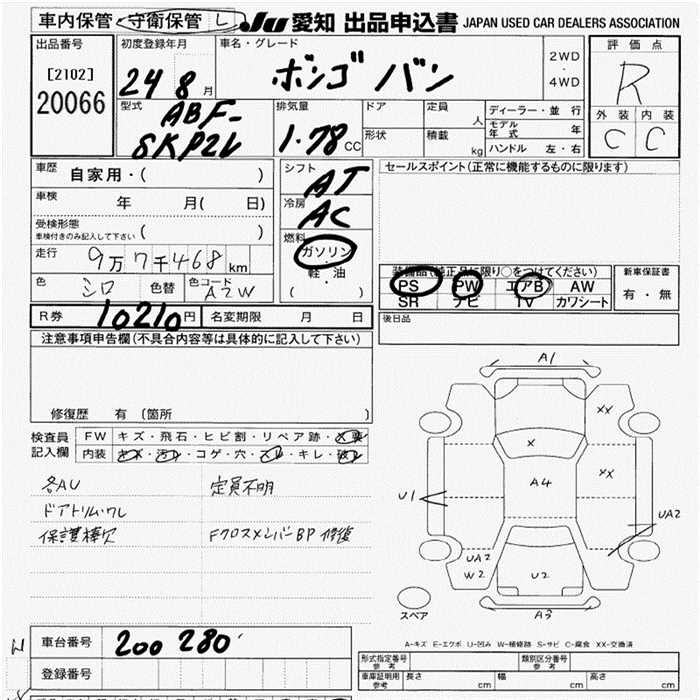 車内保管・守衛保管 L JU 愛知 出品申込書 JAPAN USED CAR DEALERS ASSOCIATION
出品番号 初度登録年月 車名・グレード 評価点
[2102] 24 8月 ボンゴ バン 2WD・4WD R
20066 型式 ABF-SKP2V 排気量 1.78CC ドア 定員 人 ディーラー・並行
形状 積載 kg モデル年式 年 外装 内装
ハンドル 左・右 C C
車歴 自家用・( ) シフト AT セールスポイント(正常に機能するものに限ります)
車検 年 月( 日) 冷房 AC
受検形態
車検付きのみ記入して下さい ( ) 燃料 ガソリン・軽・油 ( )
走行 9万7千468km 装備品(純正品に限り○をつけてください) 新車保証書
色 シロ 色替 色コード A2W PS PW エアB AW 有・無
SR ナビ TV カワシート
R券 10210円 名変期限 月 日 後日品
注意事項申告欄(不具合内容等は具体的に記入して下さい)
修復歴 有 (箇所 )
検査員 FW キズ・飛石・ヒビ割・リペア跡・X要
記入欄 内装 キズ・汚れ・コゲ・穴・スレ・キレ・破レ
各AU 定員不明
ドアトリムワレ
保護棒欠 FクロスメンバーBP修復
A1
XX
X XX
A4
U1
UA2
UA2
W2 U2
スペア A3
A-キズ E-エクボ U-凹み W-補修跡 S-サビ C-腐食 XX-交換済
車台番号 200280
登録番号
形式指定番号 参考 類別区分番号 参考
車庫証明用 参考 長さ cm 幅 cm 高さ cm